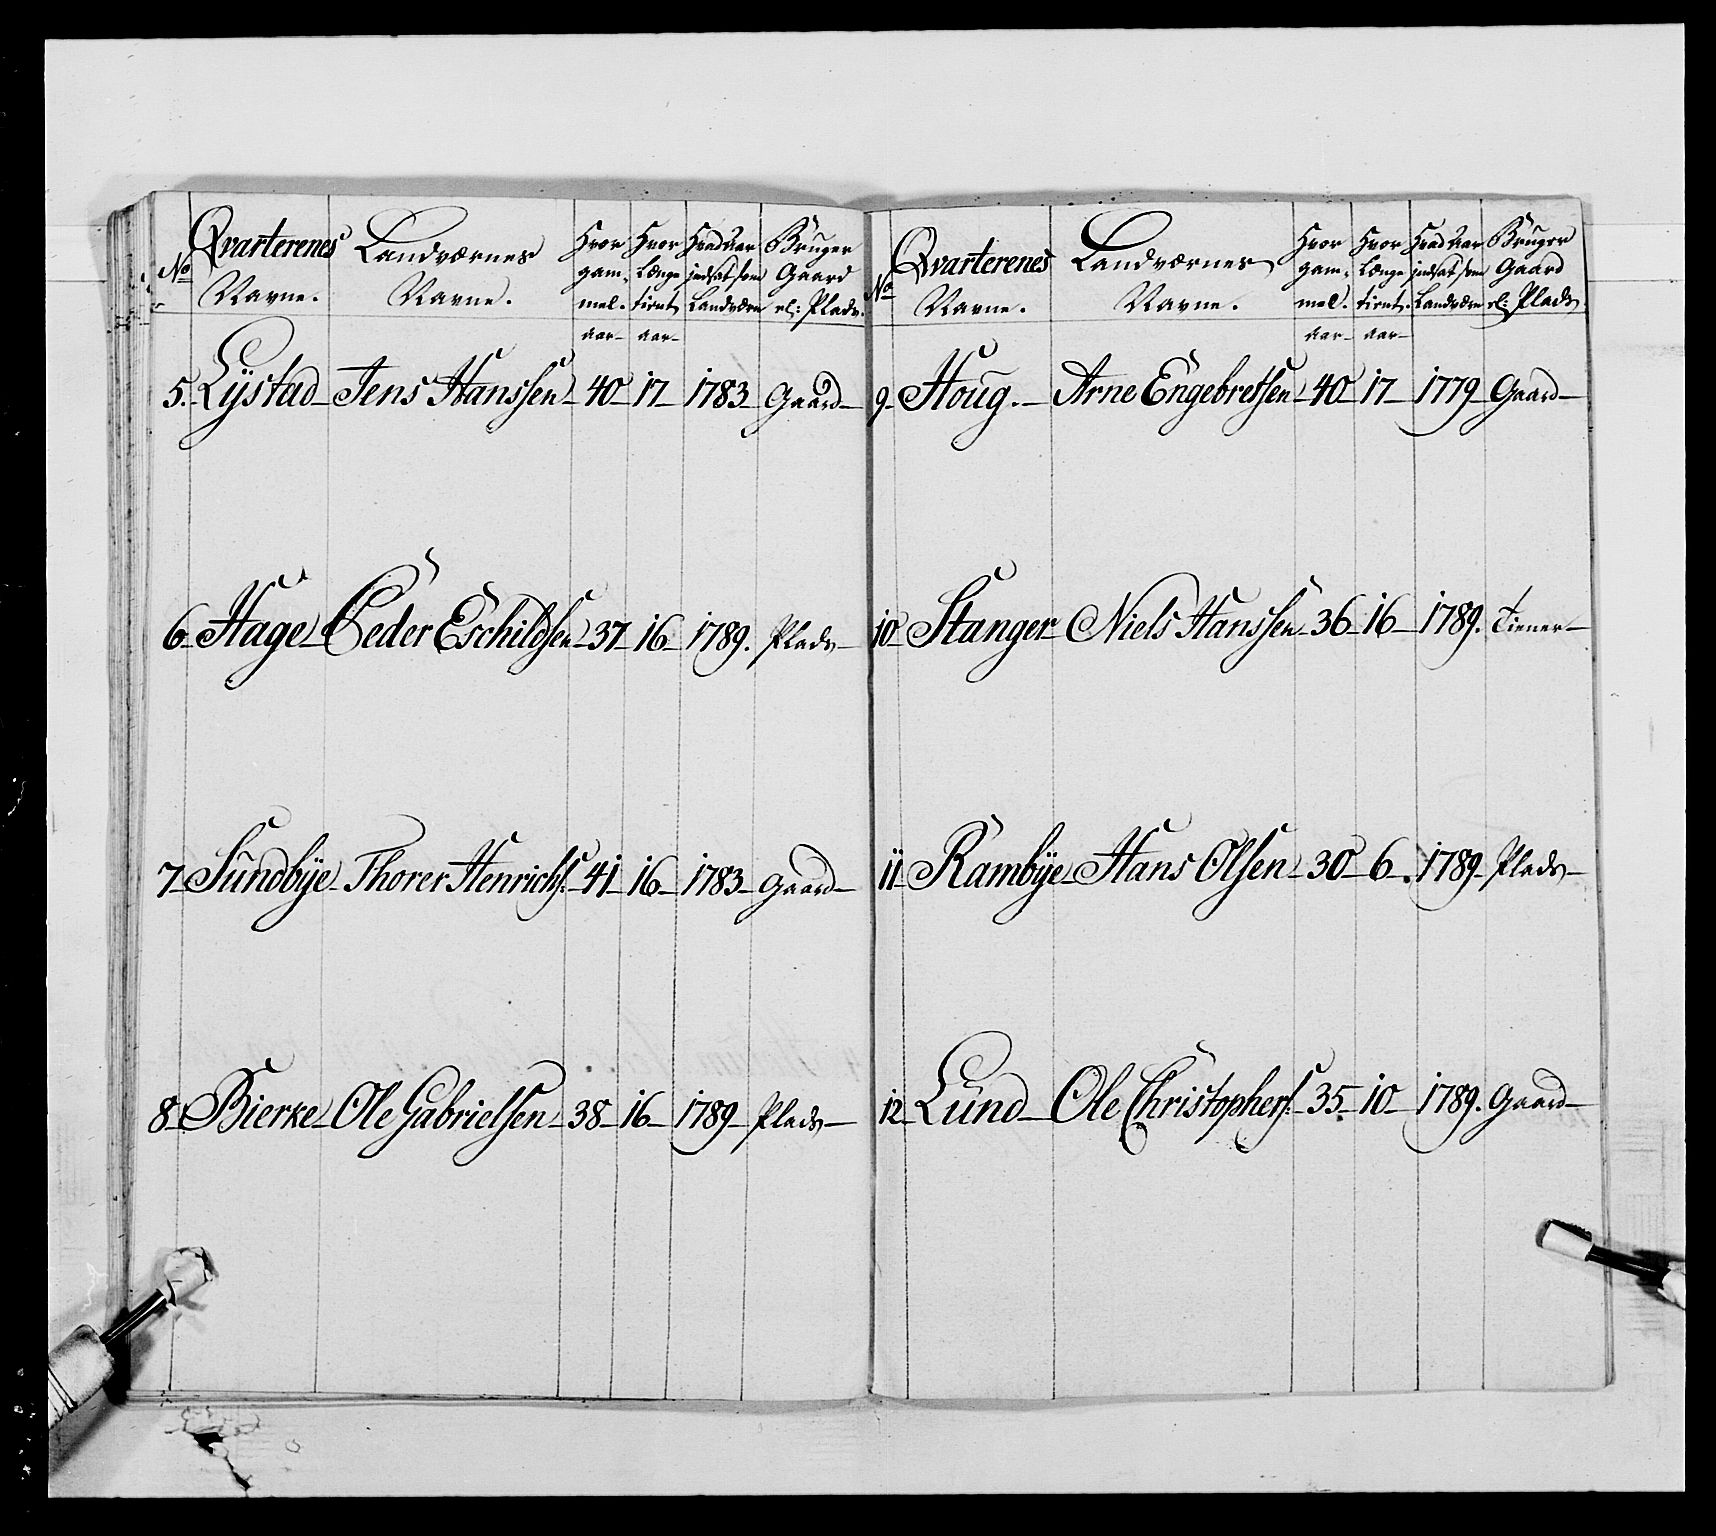 No
Qvarterenes Navne.
Landværnes Navne.
Hvor gam- mel. aar-
Hvor Længe tient aar-
Hvad Aar indsat som Landværn
Bruger Gaard el: Plads.
5. Lystad Jens Hanssen 40 17 1783 Gaard
6. Hage Peder Eschildsen 37 16 1789. Plads
7 Sundbye Thorer Henrichs: 41 16 1783 Gaard
8 Bierke Ole Gabrielsen 38 16 1789 Plads
No
Qvarterenes Navne.
Landværnes Navne.
Hvor gam- mel. aar-
Hvor Længe tient. aar-
Hvad Aar indsat som Landværn
Bruger Gaard el: Plads
9 Houg. Arne Engebretsen 40 17 1779 Gaard
10 Stanger Niels Hanssen 36 16 1789. Tiener
11 Rambye Hans Olsen 30 6. 1789 Plads
12 Lund Ole Christophers: 35 10 1789. Gaard